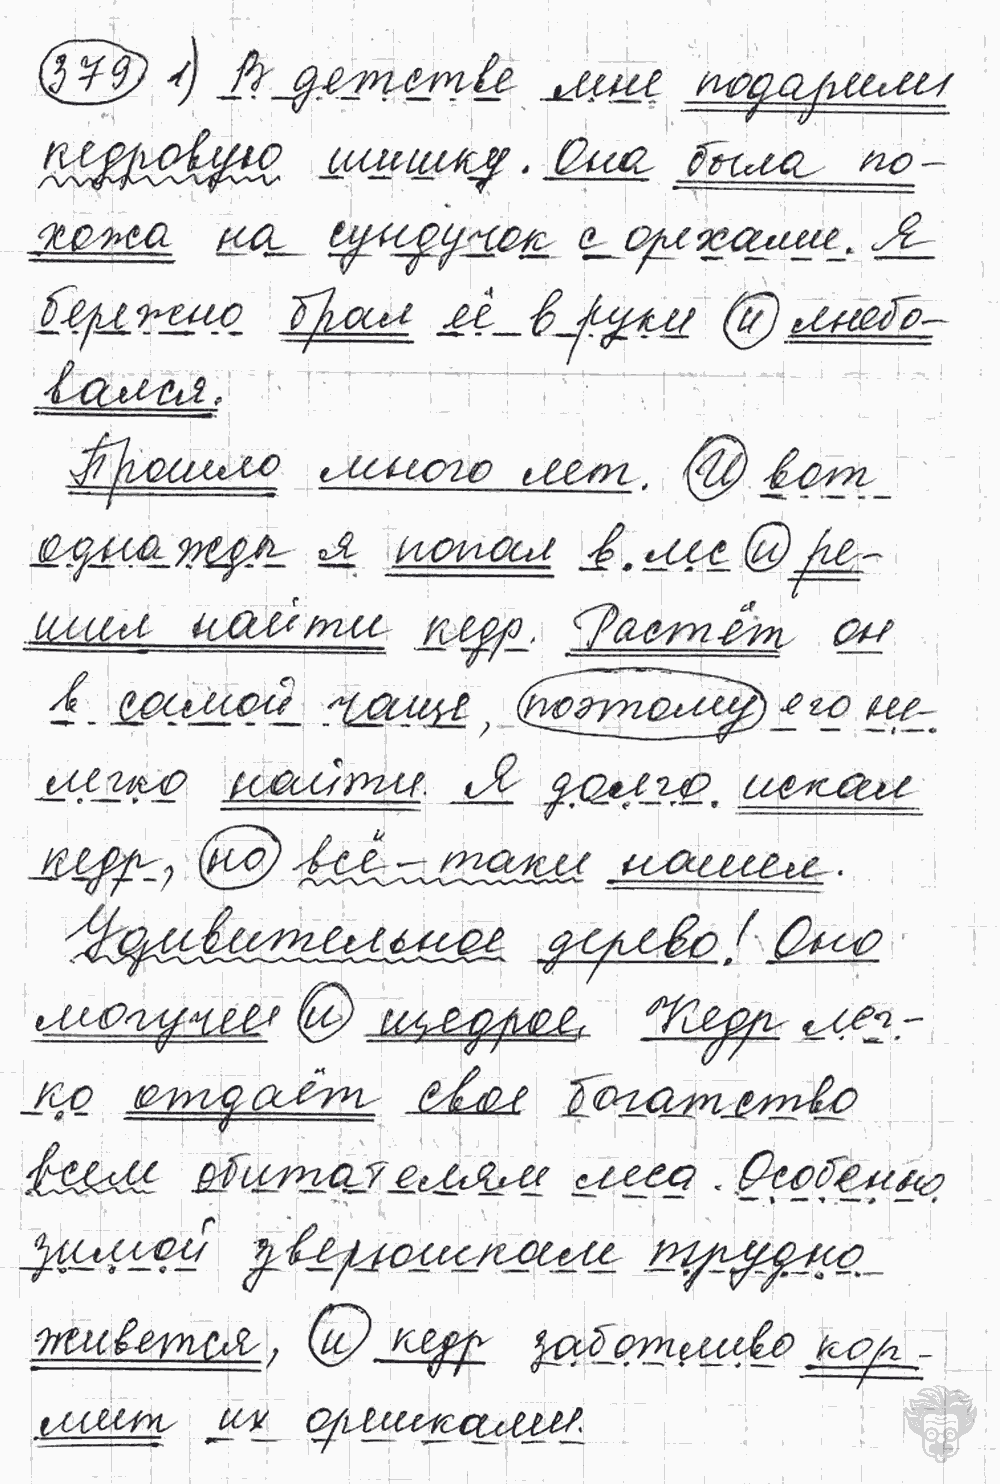 379 1) В детстве мне подарили
кедровую шишку. Она была по-
хожа на сундучок с орехами. Я
бережно брал её в руки и любо-
вался.
Прошло много лет. И вот
однажды я попал в лес и ре-
шил найти кедр. Растёт он
в самой чаще, поэтому его не-
легко найти. Я долго искал
кедр, но всё-таки нашел.
Удивительное дерево! Оно
могучее и щедрое. Кедр лег-
ко отдаёт свое богатство
всем обитателям леса. Особенно
зимой зверюшкам трудно
живется, и кедр заботливо кор-
мит их орешками.